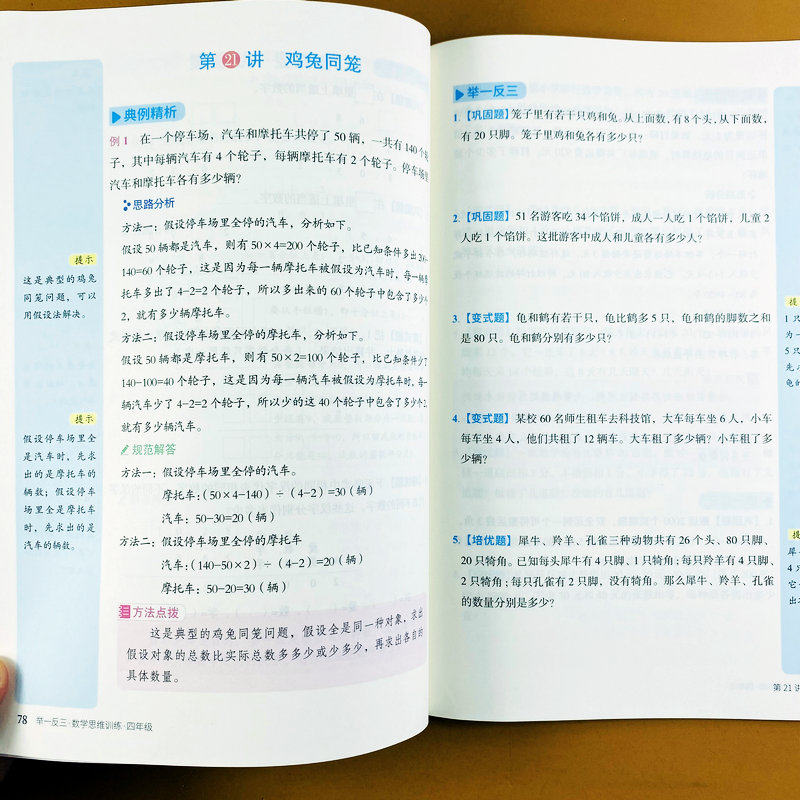 第21讲 鸡兔同笼
典例精析
例1 在一个停车场，汽车和摩托车共停了50辆，一共有140个轮
子，其中每辆汽车有4个轮子，每辆摩托车有2个轮子。停车场里
汽车和摩托车各有多少辆？
思路分析
方法一：假设停车场里全停的汽车，分析如下。
假设50辆都是汽车，则有50×4=200个轮子，比已知条件多出200-
140=60个轮子，这是因为每一辆摩托车被假设为汽车时，每一辆摩
托车多出了4-2=2个轮子，所以多出来的60个轮子中包含了多少个
2，就有多少辆摩托车。
方法二：假设停车场里全停的摩托车，分析如下。
假设50辆都是摩托车，则有50×2=100个轮子，比已知条件少了
140-100=40个轮子，这是因为每一辆汽车被假设为摩托车时，每一
辆汽车少了4-2=2个轮子，所以少的这40个轮子中包含了多少个2，
就有多少辆汽车。
规范解答
方法一：假设停车场里全停的汽车。
摩托车：(50×4-140)÷(4-2)=30（辆）
汽车：50-30=20（辆）
方法二：假设停车场里全停的摩托车
汽车：(140-50×2)÷(4-2)=20（辆）
摩托车：50-20=30（辆）
方法点拨
这是典型的鸡兔同笼问题，假设全是同一种对象，求出
假设对象的总数比实际总数多多少或少多少，再求出各自的
具体数量。
提示
这是典型的鸡兔
同笼问题，可以
用假设法解决。
提示
假设停车场里全
是汽车时，先求
出的是摩托车的
辆数；假设停车
场里全是摩托车
时，先求出的是
汽车的辆数。
78 举一反三·数学思维训练·四年级
举一反三
1.【巩固题】笼子里有若干只鸡和兔。从上面数，有8个头，从下面数，
有20只脚。笼子里鸡和兔各有多少只？
2.【巩固题】51名游客吃34个馅饼，成人一人吃1个馅饼，儿童2
人吃1个馅饼。这批游客中成人和儿童各有多少人？
3.【变式题】龟和鹤有若干只，龟比鹤多5只，龟和鹤的脚数之和
是80只。龟和鹤分别有多少只？
4.【变式题】某校60名师生租车去科技馆，大车每车坐6人，小车
每车坐4人，他们共租了12辆车。大车租了多少辆？小车租了多
少辆？
5.【培优题】犀牛、羚羊、孔雀三种动物共有26个头、80只脚、
20只犄角。已知每头犀牛有4只脚、1只犄角；每只羚羊有4只脚、
2只犄角；每只孔雀有2只脚，没有犄角。那么犀牛、羚羊、孔雀
的数量分别是多少？
第21讲